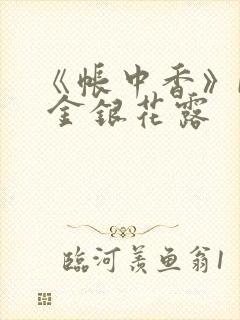 《帐中香》
金银花露
临河羡鱼翁1